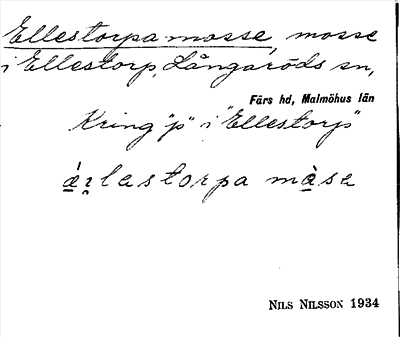 Ellestorpa mosse, mosse
i Ellestorp, Långaröds sn,
Färs hd, Malmöhus län
Kring "p" i "Ellestorp"
màse
NILS NILSSON 1934